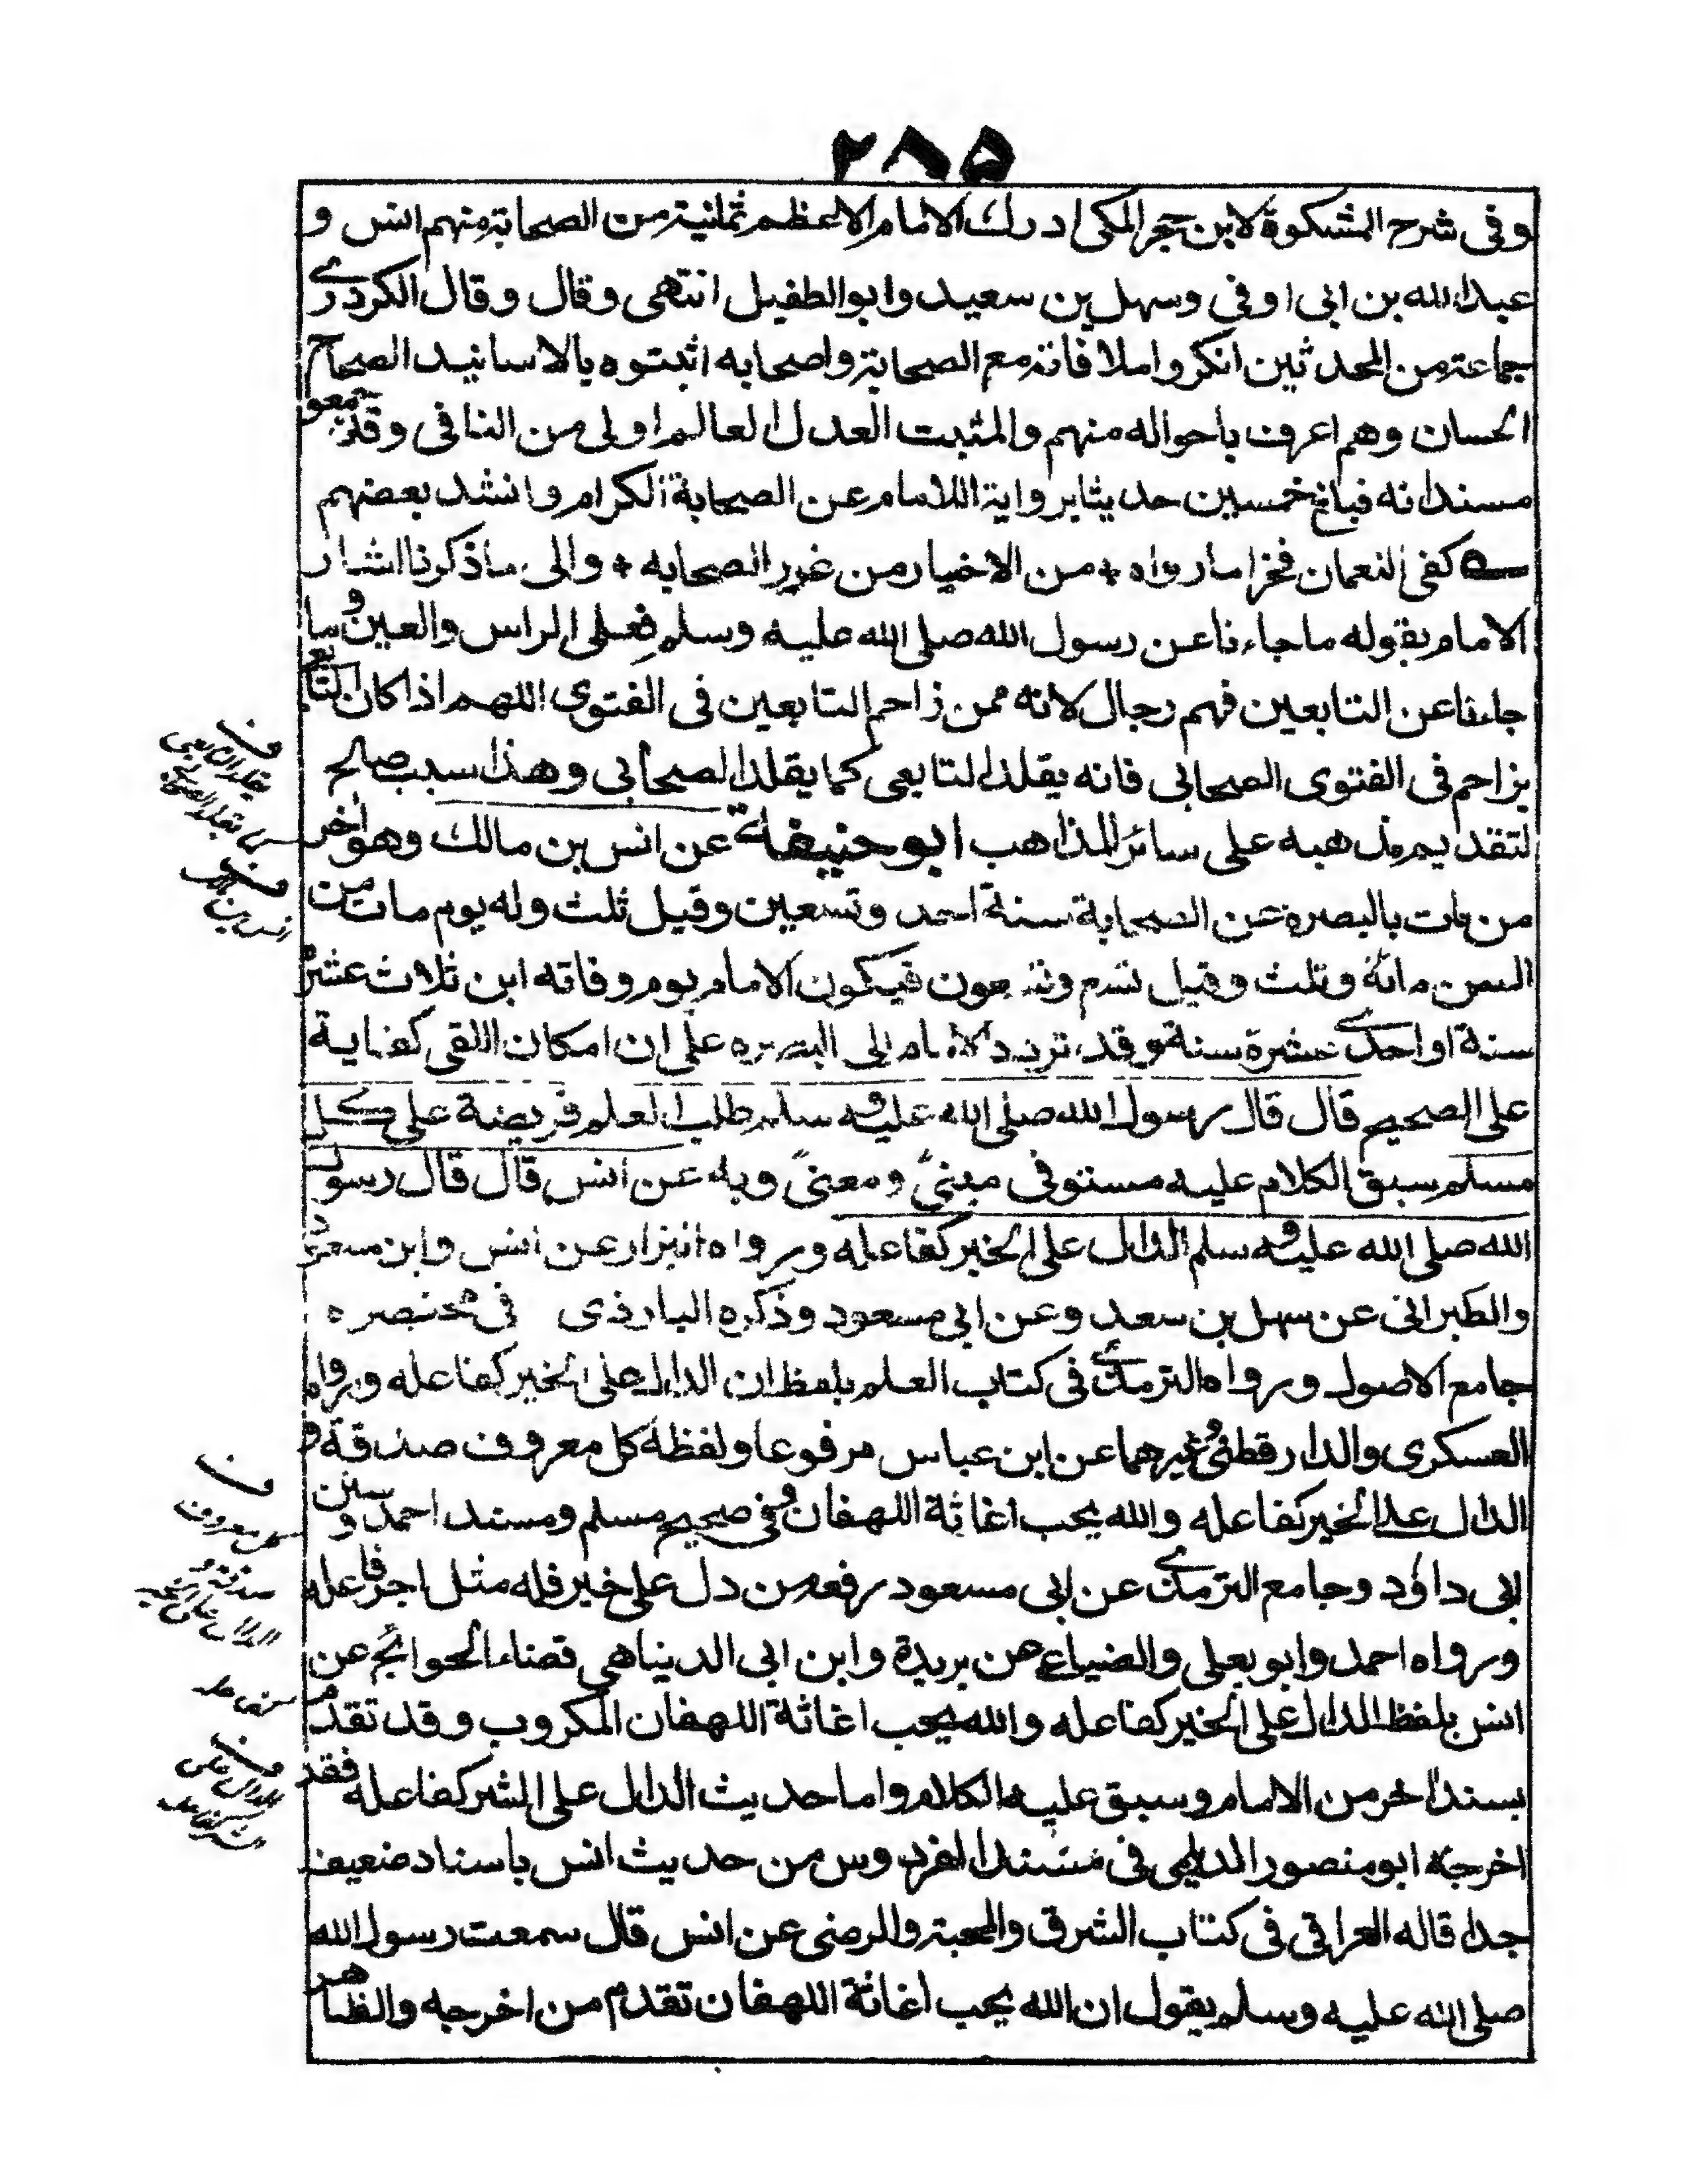 ٢٨٥
وفى شرح المشكوة لابن حجر المكى ادرك الامام الاعظم ثمانية من الصحابة منهم انس و
عبد الله بن ابى اوفى وسهل بن سعيد وابو الطفيل انتهى وقال وقال الكردرى
جماعة من المحدثين انكروا ملاقاته مع الصحابة واصحابه اثبتوه بالاسانيد الصحاح
الحسان وهم اعرف باحواله منهم والمثبت العدل العالم اولى من النافى وقد جمعو
مسنداته فبلغ خمسين حديثا برواية اللامام عن الصحابة الكرام وانشد بعضهم
كفى النعمان فخرا ما رواه + من الاخيار من غرر الصحابه + والى ما ذكرنا اشار
الامام بقوله ما جاءنا عن رسول الله صلى الله عليه وسلم فعلى الراس والعين وما
جاءنا عن التابعين فهم رجال لانه ممن زاحم التابعين فى الفتوى اللهم اذا كان التابعى
يزاحم فى الفتوى الصحابى فانه يقلد التابعى كما يقلد الصحابى وهذا سبب صالح
لتقديم مذهبه على سائر المذاهب ابو حنيفة عن انس بن مالك وهو اخر
من مات بالبصرة عن الصحابة سنة احد وتسعين وقيل ثلث وله يوم مات من
السن مائة وثلث وقيل تسع وتسعون فيكون الامام يوم وفاته ابن ثلاث عشر
سنة او احدى عشرة سنة وقد تردد الامام الى البصره على ان امكان اللقى كفاية
على الصحيح قال قال رسول الله صلى الله عليه وسلم طلب العلم فريضة على كل
مسلم سبق الكلام عليه مستوفى مبنىً ومعنىً وبه عن انس قال قال رسول
الله صلى الله عليه وسلم الدال على الخير كفاعله ورواه البزار عن انس وابن مسعود
والطبرانى عن سهل بن سعد وعن ابى مسعود وذكره البارذى فى مختصره
جامع الاصول ورواه الترمذى فى كتاب العلم بلفظ ان الدال على الخير كفاعله ورواه
العسكرى والدار قطنى وغيرهما عن ابن عباس مرفوعا ولفظه كل معروف صدقة و
الدال على الخير كفاعله والله يحب اغاثة اللهفان وفى صحيح مسلم ومسند احمد وسنن
ابى داؤد وجامع الترمذى عن ابى مسعود رفعه من دل على خير فله مثل اجر فاعله
ورواه احمد وابو يعلى والضياء عن بريدة وابن ابى الدنيا هى قضاء الحوائج عن
انس بلفظ الدال على الخير كفاعله والله يحب اغاثة اللهفان المكروب وقد تقدم
بسند اخر من الامام وسبق عليه الكلام واما حديث الدال على الشر كفاعله فقد
اخرجه ابو منصور الديلمى فى مسند الفردوس من حديث انس باسناد ضعيف
جدا قاله العراقى فى كتاب الشرق والمحبة والرضى عن انس قال سمعت رسول الله
صلى الله عليه وسلم يقول ان الله يحب اغاثة اللهفان تقدم من اخرجه والظاهر